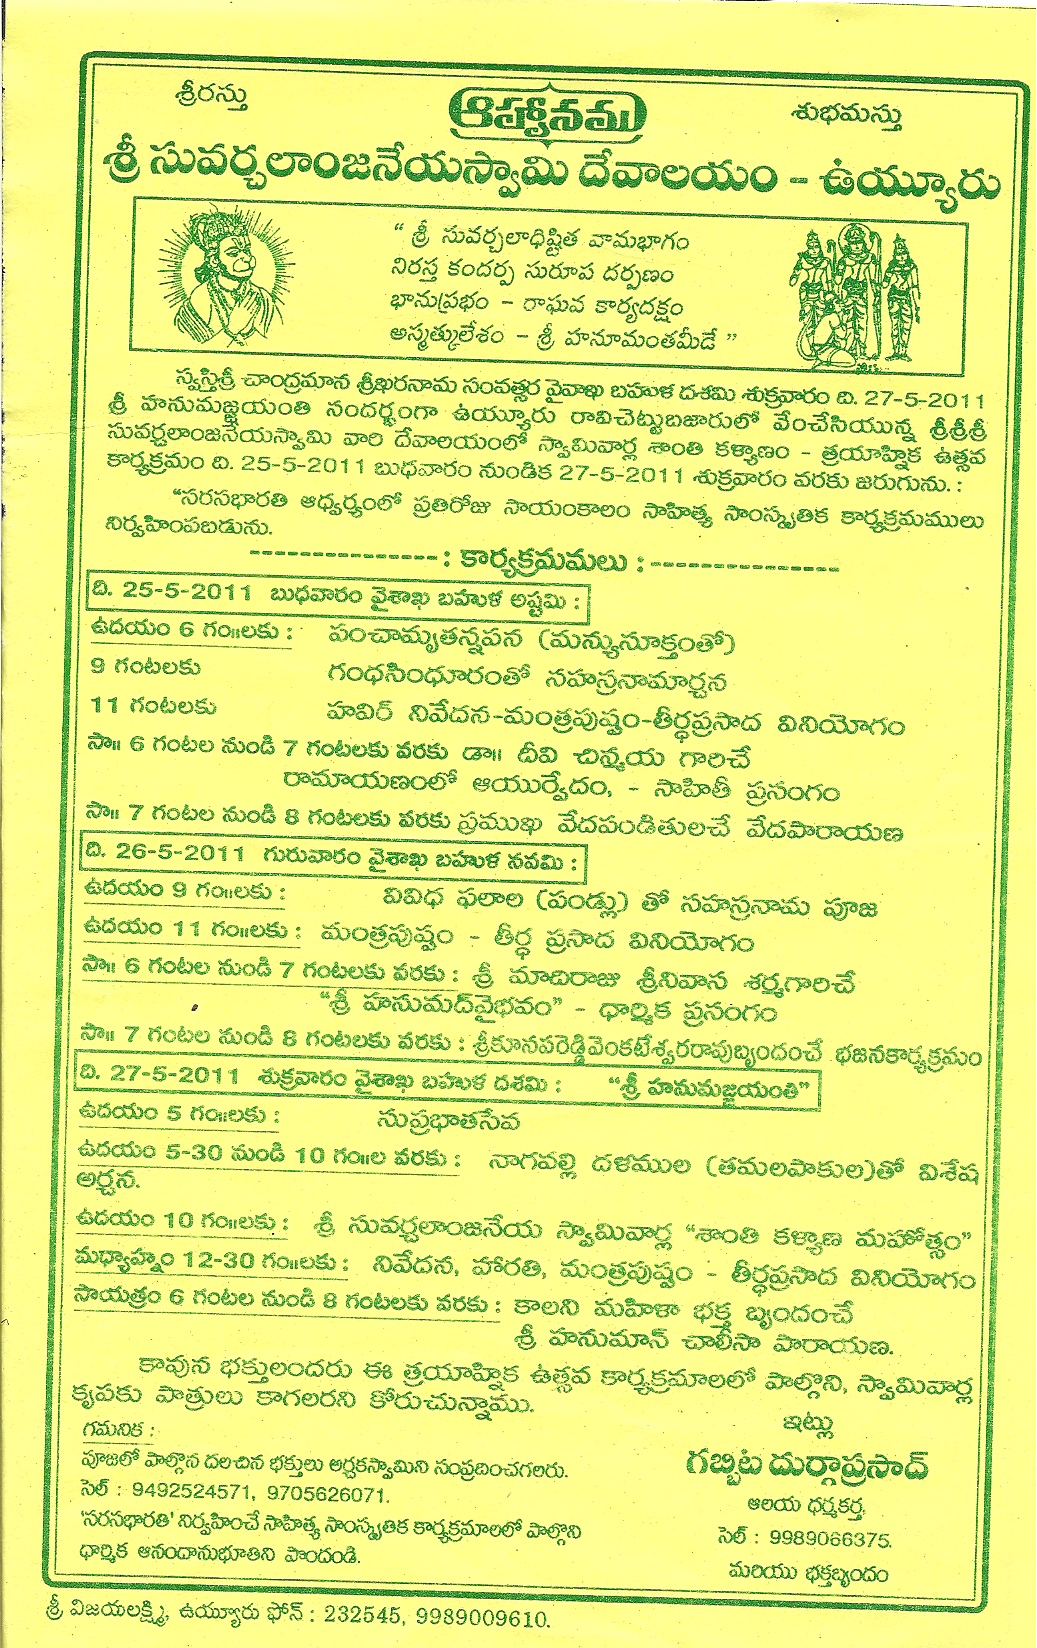 శ్రీరస్తు
ఆహ్వానము
శుభమస్తు
శ్రీ సువర్చలాంజనేయస్వామి దేవాలయం - ఉయ్యూరు
“ శ్రీ సువర్చలాధిష్టిత వామభాగం
నిరస్త కందర్ప సురూప దర్పణం
భానుప్రభం - రాఘవ కార్యదక్షం
అస్మత్కులేశం - శ్రీ హనూమంతమీడే ”
స్వస్తిశ్రీ చాంద్రమాన శ్రీఖరనామ సంవత్సర వైశాఖ బహుళ దశమి శుక్రవారం ది. 27-5-2011
శ్రీ హనుమజ్జయంతి సందర్భంగా ఉయ్యూరు రావిచెట్టుబజారులో వేంచేసియున్న శ్రీశ్రీశ్రీ
సువర్చలాంజనేయస్వామి వారి దేవాలయంలో స్వామివార్ల శాంతి కళ్యాణం - త్రయాహ్నిక ఉత్సవ
కార్యక్రమం ది. 25-5-2011 బుధవారం నుండిక 27-5-2011 శుక్రవారం వరకు జరుగును. :
“సరసభారతి ఆధ్వర్యంలో ప్రతిరోజు సాయంకాలం సాహిత్య సాంస్కృతిక కార్యక్రమములు
నిర్వహింపబడును.
---------------: కార్యక్రమమలు :---------------
ది. 25-5-2011 బుధవారం వైశాఖ బహుళ అష్టమి :
ఉదయం 6 గం॥లకు : పంచామృతస్నపన (మన్యుసూక్తంతో)
9 గంటలకు గంధసింధూరంతో సహస్రనామార్చన
11 గంటలకు హవిర్ నివేదన-మంత్రపుష్పం-తీర్ధప్రసాద వినియోగం
సా॥ 6 గంటల నుండి 7 గంటలకు వరకు డా॥ దీవి చిన్మయ గారిచే
రామాయణంలో ఆయుర్వేదం, - సాహితీ ప్రసంగం
సా॥ 7 గంటల నుండి 8 గంటలకు వరకు ప్రముఖ వేదపండితులచే వేదపారాయణ
ది. 26-5-2011 గురువారం వైశాఖ బహుళ నవమి :
ఉదయం 9 గం॥లకు : వివిధ ఫలాల (పండ్లు) తో సహస్రనామ పూజ
ఉదయం 11 గం॥లకు : మంత్రపుష్పం - తీర్ధ ప్రసాద వినియోగం
సా॥ 6 గంటల నుండి 7 గంటలకు వరకు : శ్రీ మాదిరాజు శ్రీనివాస శర్మగారిచే
“శ్రీ హనుమద్‌వైభవం” - ధార్మిక ప్రసంగం
సా॥ 7 గంటల నుండి 8 గంటలకు వరకు : శ్రీకూనపరెడ్డివెంకటేశ్వరరావుబృందంచే భజనకార్యక్రమం
ది. 27-5-2011 శుక్రవారం వైశాఖ బహుళ దశమి : “శ్రీ హనుమజ్జయంతి”
ఉదయం 5 గం॥లకు : సుప్రభాతసేవ
ఉదయం 5-30 నుండి 10 గం॥ల వరకు : నాగవల్లి దళముల (తమలపాకుల)తో విశేష
అర్చన.
ఉదయం 10 గం॥లకు : శ్రీ సువర్చలాంజనేయ స్వామివార్ల “శాంతి కళ్యాణ మహోత్సం”
మధ్యాహ్నం 12-30 గం॥లకు : నివేదన, హారతి, మంత్రపుష్పం - తీర్ధప్రసాద వినియోగం
సాయత్రం 6 గంటల నుండి 8 గంటలకు వరకు : కాలని మహిళా భక్త బృందంచే
శ్రీ హనుమాన్ చాలీసా పారాయణ.
కావున భక్తులందరు ఈ త్రయాహ్నిక ఉత్సవ కార్యక్రమాలలో పాల్గొని, స్వామివార్ల
కృపకు పాత్రులు కాగలరని కోరుచున్నాము.
ఇట్లు
గమనిక :
గబ్బిట దుర్గాప్రసాద్
పూజలో పాల్గొన దలచిన భక్తులు అర్చకస్వామిని సంప్రదించగలరు.
ఆలయ ధర్మకర్త,
సెల్ : 9492524571, 9705626071.
సెల్ : 9989066375.
'సరసభారతి' నిర్వహించే సాహిత్య సాంస్కృతిక కార్యక్రమాలలో పాల్గొని
ధార్మిక ఆనందానుభూతిని పొందండి.
మరియు భక్తబృందం
శ్రీ విజయలక్ష్మి, ఉయ్యూరు ఫోన్ : 232545, 9989009610.